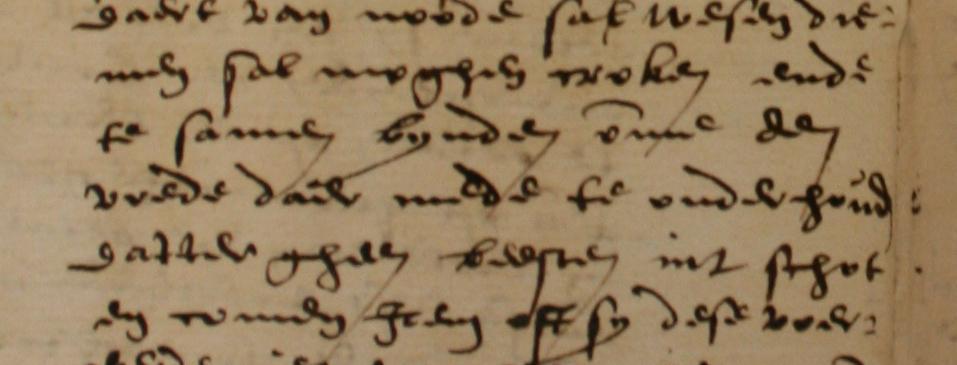 daert van noode sal wesen die:
men sal moghen croken ende
te samen bynden o͞me den
vrede daer mede te onderhoud:
datter gheen beesten int schot
en comen Item oft sy dese voer: